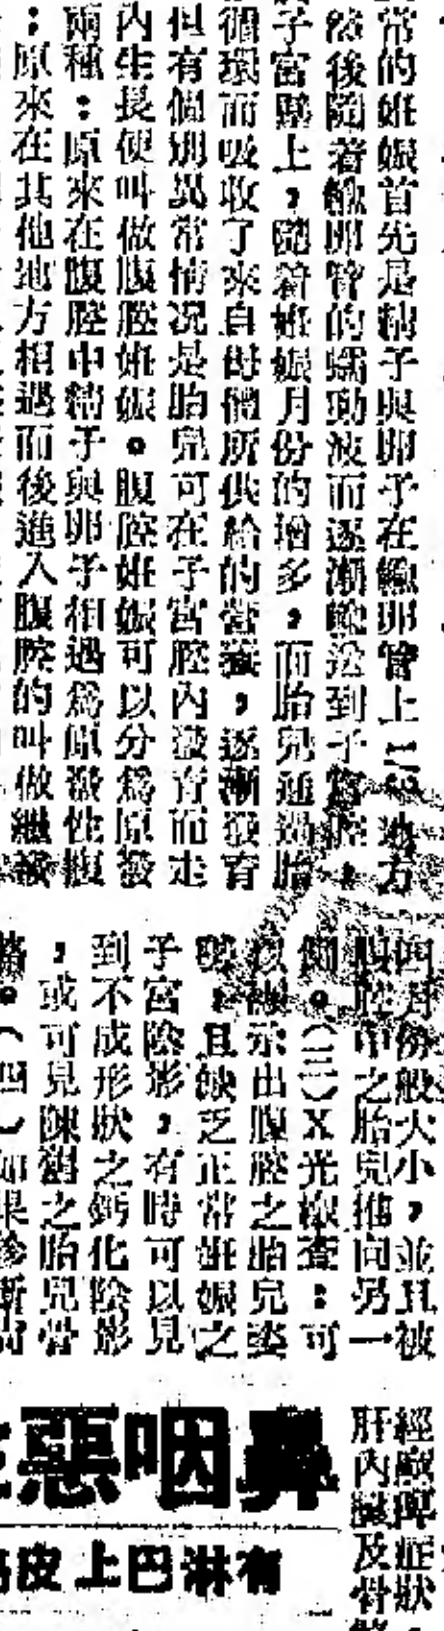 常的姙娠首先是精子與卵子在輸卵管上1/3地方
然後隨着輸卵管的蠕動波而逐漸輸送到子宮腔，
子宮壁上，隨着姙娠月份的增多，而胎兒通過胎
循環而吸收了來自母體所供給的營養，逐漸發育
但有個別異常情况是胎兒可在子宮腔內發育而走
內生長便叫做腹腔姙娠。腹腔姙娠可以分爲原發
兩種：原來在腹腔中精子與卵子相遇爲原發性腹
：原來在其他地方相遇而後進入腹腔的叫做繼發
四月份般大小，並且被
腹腔中之胎兒推向另一
側。（三）X光檢查：可
以顯示出腹腔之胎兒姿
，且缺乏正常姙娠之
子宮陰影，有時可以見
到不成形狀之鈣化陰影
，或可見陳舊之胎兒骨
骼。（四）如果診斷尚
經症狀，
肝內臟及骨骼
鼻咽惡
有淋巴上皮